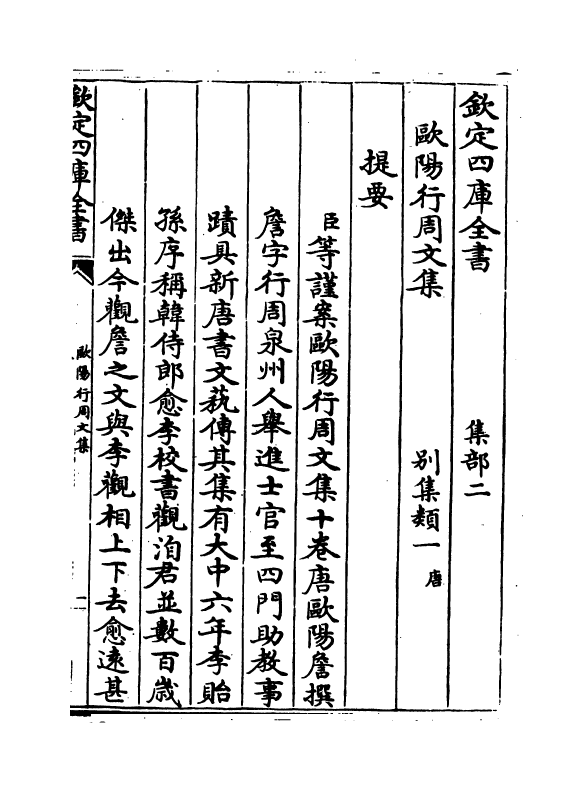 欽定四庫全書　集部二
歐陽行周文集　別集類一唐
提要
臣等謹案歐陽行周文集十卷唐歐陽詹撰
詹字行周泉州人舉進士官至四門助教事
蹟具新唐書文苑傳其集有大中六年李貽
孫序稱韓侍郎愈李校書觀洎君並數百歲
傑出今觀詹之文與李觀相上下去愈遠甚
欽定四庫全書
歐陽行周文集